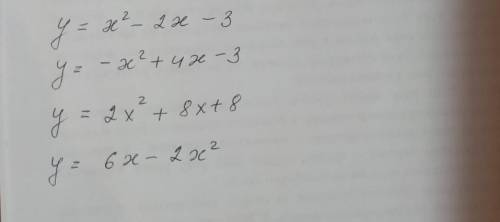 y = x² - 2x - 3
y = -x² + 4x - 3
y = 2x² + 8x + 8
y = 6x - 2x²